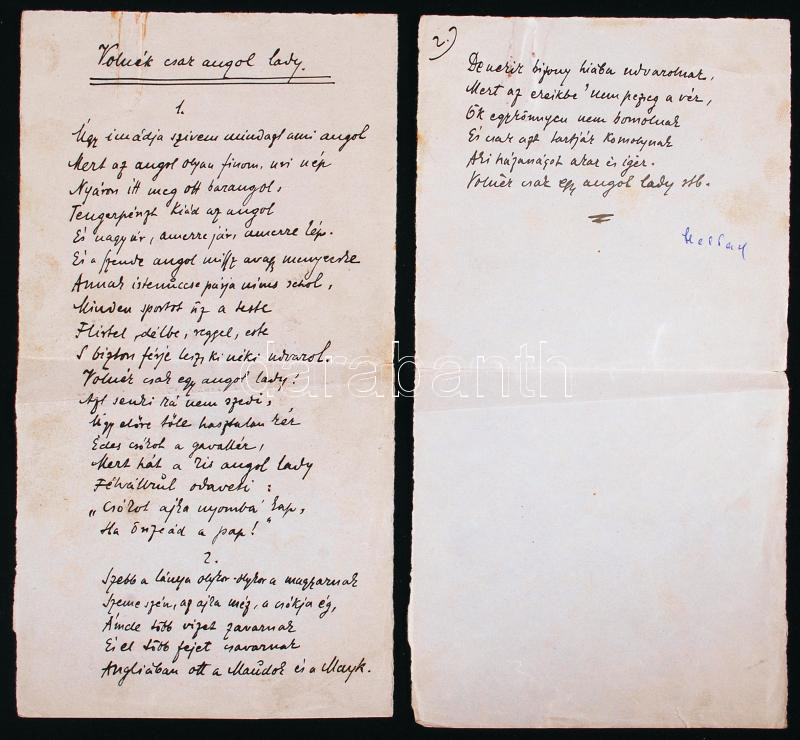 Volnék csak angol lady.
1.
Úgy imádja szivem mindazt ami angol
Mert az angol olyan finom, uri nép
Nyáron itt meg ott barangol,
Tengerpénzt kiád az angol
És nagy úr, amerre jár, amerre lép.
És a szende angol missz avagy menyecske
Annak istenuccse párja nincs sehol,
Minden sportot űz a teste
Flirtel, délbe, reggel, este
S bizton férje lesz ki néki udvarol.
Volnék csak egy angol lady!
Azt senki rá nem szedi,
Úgy előre tőle hasztalan kér
Édes csókot a gavallér,
Mert hát a kis angol lady
Félvállrúl odaveti:
„Csókot ajka nyomba kap,
Ha összeád a pap!"
2.
Szebb a lánya olykor-olykor a magyarnak
Szeme szén, az ajka méz, a csókja ég,
Ámde több vizet zavarnak
És el több fejet csavarnak
Angliában ott a Maudok és a Mayk.
2.)
De nekik bizony hiába udvarolnak,
Mert az ereikbe' nem pezseg a vér,
Ők egykönnyen nem bomolnak
És csak azt tartják komolynak
Aki házasságot akar és igér.
Volnék csak egy angol lady stb.
darabanth